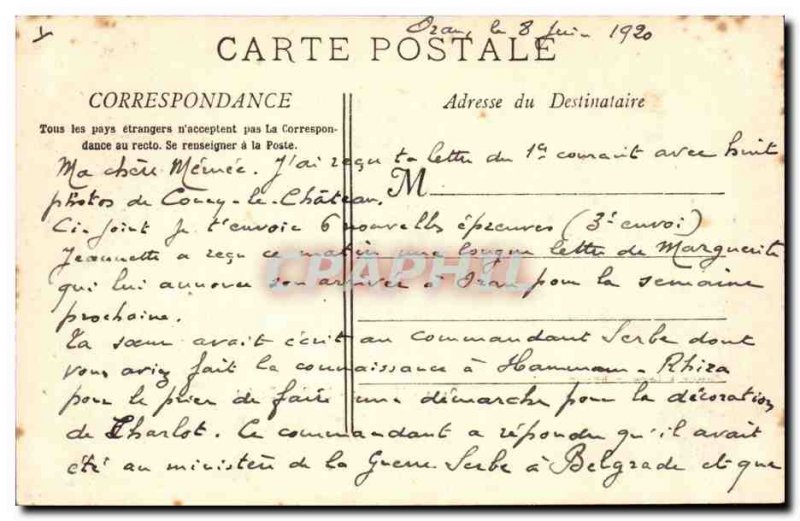 Oran, le 8 Juin 1920
CARTE POSTALE
CORRESPONDANCE
Adresse du Destinataire
Tous les pays étrangers n'acceptent pas La Correspon-
dance au recto. Se renseigner à la Poste.
M
Ma chère Mémée. J'ai reçu ta lettre du 1er courant avec huit
photos de Coucy-le-Château.
Ci-joint je t'envoie 6 nouvelles épreuves (3e envoi)
Jeannette a reçu ce matin une longue lettre de Marguerite
qui lui annonce son arrivée à Oran pour la semaine
prochaine.
Ta sœur avait écrit au commandant Serbe dont
vous aviez fait la connaissance à Hammam-Rhira
pour le prier de faire une démarche pour la décoration
de Charlot. Ce commandant a répondu qu'il avait
été au ministère de la Guerre Serbe à Belgrade et que
CPAPHIL